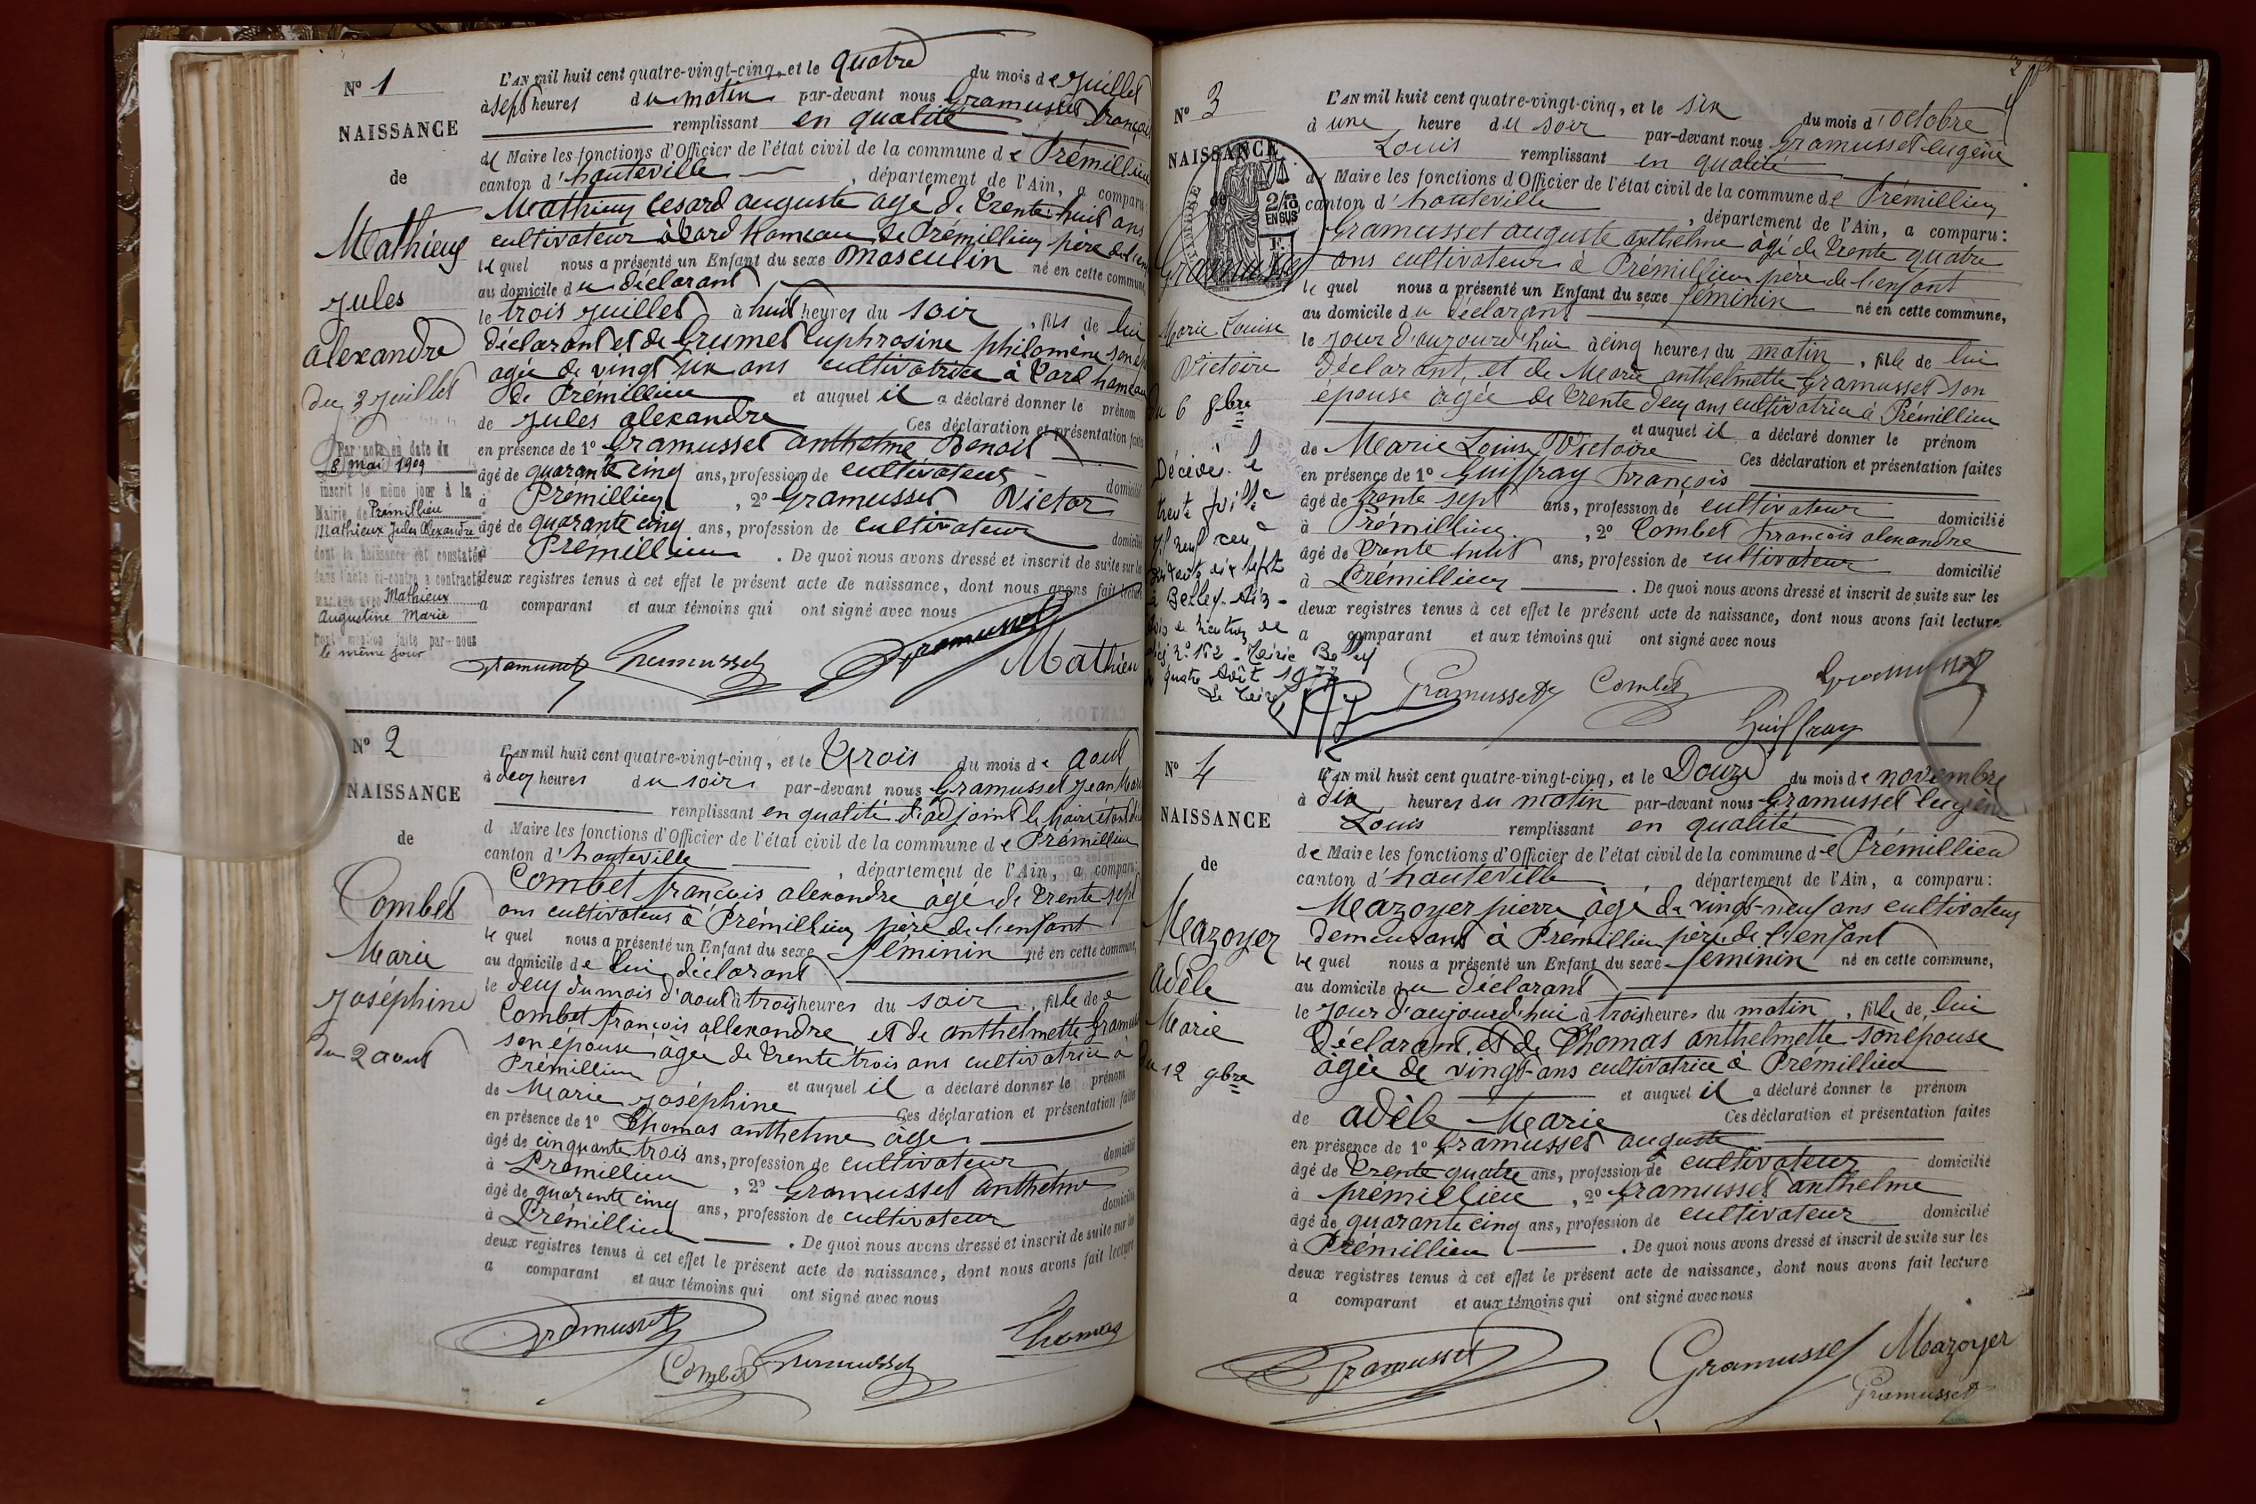 N° 1
NAISSANCE
de
Mathieu
Jules
alexandre
du 3 juillet
Par acte en date du
8 mai 1909
inscrit le même jour à la
Mairie de Prémillieu
Mathieux Jules Alexandre
dont la naissance est constatée
dans l'acte ci-contre a contracté
mariage avec Mathieux
Augustine Marie
Dont mention faite par nous
le même jour
L'AN mil huit cent quatre-vingt-cinq, et le quatre du mois de juillet
à sept heures du matin par-devant nous Gramusset françois
remplissant en qualité
de Maire les fonctions d'Officier de l'état civil de la commune de Prémillieu
canton d'hauteville, département de l'Ain, a comparu
Mathieu Cesard auguste âgé de trente huit ans
cultivateur à hameau de Prémillieu père de l'enf
le quel nous a présenté un Enfant du sexe masculin né en cette commune,
au domicile du déclarant
le trois juillet à huit heures du soir, fils de lui
déclarant et de Grumet Euphrosine philomène son ép
agée de vingt six ans cultivatrice à hameau
de Prémillieu et auquel il a déclaré donner le prénom
de Jules alexandre Ces déclaration et présentation faites
en présence de 1° Gramusset anthelme Benoit
âgé de quarante cinq ans, profession de cultivateur domicilié
à Prémillieu, 2° Gramusset Victor
âgé de quarante cinq ans, profession de cultivateur domicilié
à Prémillieu. De quoi nous avons dressé et inscrit de suite sur les
deux registres tenus à cet effet le présent acte de naissance, dont nous avons fait lecture
a comparant et aux témoins qui ont signé avec nous
Gramusset Gramusset Gramusset Mathieu
N° 2
NAISSANCE
de
Combet
Marie
Joséphine
du 2 aout
L'AN mil huit cent quatre-vingt-cinq, et le trois du mois de aout
à deux heures du soir par-devant nous Gramusset Jean Marie
remplissant en qualité d'adjoint le maire étant
d Maire les fonctions d'Officier de l'état civil de la commune de Prémillieu
canton d'hauteville, département de l'Ain, a comparu:
Combet françois alexandre âgé de trente sept
ans cultivateur à Prémillieu père de l'enfant
le quel nous a présenté un Enfant du sexe féminin né en cette commune,
au domicile de lui déclarant
le deux du mois d'aout à trois heures du soir, fille de
Combet françois allexandre et de anthelmette Gramus
son épouse âgée de trente trois ans cultivatrice à
Prémillieu et auquel il a déclaré donner le prénom
de Marie Joséphine Ces déclaration et présentation faites
en présence de 1° Thomas anthelme âgé
âgé de cinquante trois ans, profession de cultivateur domicilié
à Prémillieu, 2° Gramusset anthelme
âgé de quarante cinq ans, profession de cultivateur domicilié
à Prémillieu. De quoi nous avons dressé et inscrit de suite sur les
deux registres tenus à cet effet le présent acte de naissance, dont nous avons fait lecture
a comparant et aux témoins qui ont signé avec nous
Gramusset Combet Gramusset Thomas
2
N° 3
NAISSANCE
de
2/10
EN SUS
Gramusset
Marie Louise
Victoire
du 6 8bre
Décédée le
trente juillet
mil neuf cent
soixante dix sept
à Belley - Ain -
Mairie Belley
quatre Août 1977
Le Maire
L'AN mil huit cent quatre-vingt-cinq, et le six du mois d'octobre
à une heure du soir par-devant nous Gramusset Eugène
Louis remplissant en qualité
de Maire les fonctions d'Officier de l'état civil de la commune de Prémillieu
canton d'hauteville, département de l'Ain, a comparu:
Gramusset auguste anthelme âgé de trente quatre
ans cultivateur à Prémillieu père de l'enfant
le quel nous a présenté un Enfant du sexe féminin né en cette commune,
au domicile du déclarant
le jour d'aujourd'hui à cinq heures du matin, fille de lui
déclarant, et de Marie anthelmette Gramusset son
épouse âgée de trente deux ans cultivatrice à Prémillieu
et auquel il a déclaré donner le prénom
de Marie Louise Victoire Ces déclaration et présentation faites
en présence de 1° Guiffray françois
âgé de trente sept ans, profession de cultivateur domicilié
à Prémillieu, 2° Combet françois alexandre
âgé de trente huit ans, profession de cultivateur domicilié
à Prémillieu. De quoi nous avons dressé et inscrit de suite sur les
deux registres tenus à cet effet le présent acte de naissance, dont nous avons fait lecture
a comparant et aux témoins qui ont signé avec nous
Gramusset Combet Gramusset
Guiffray
N° 4
NAISSANCE
de
Mazoyer
Adèle
Marie
du 12 9bre
L'AN mil huit cent quatre-vingt-cinq, et le Douze du mois de novembre
à dix heures du matin par-devant nous Gramusset Eugène
Louis remplissant en qualité
de Maire les fonctions d'Officier de l'état civil de la commune de Prémillieu
canton d'hauteville département de l'Ain, a comparu:
Mazoyer pierre âgé de vingt-neuf ans cultivateur
demeurant à Prémillieu père de l'enfant
le quel nous a présenté un Enfant du sexe féminin né en cette commune,
au domicile du déclarant
le jour d'aujourd'hui à trois heures du matin, fille de lui
déclarant, et de Thomas anthelmette son épouse
âgée de vingt-ans cultivatrice à Prémillieu
et auquel il a déclaré donner le prénom
de adèle Marie Ces déclaration et présentation faites
en présence de 1° Gramusset auguste
âgé de trente quatre ans, profession de cultivateur domicilié
à prémillieu, 2° Gramusset anthelme
âgé de quarante cinq ans, profession de cultivateur domicilié
à Prémillieu. De quoi nous avons dressé et inscrit de suite sur les
deux registres tenus à cet effet le présent acte de naissance, dont nous avons fait lecture
a comparant et aux témoins qui ont signé avec nous
Gramusset Gramusset Mazoyer
Gramusset